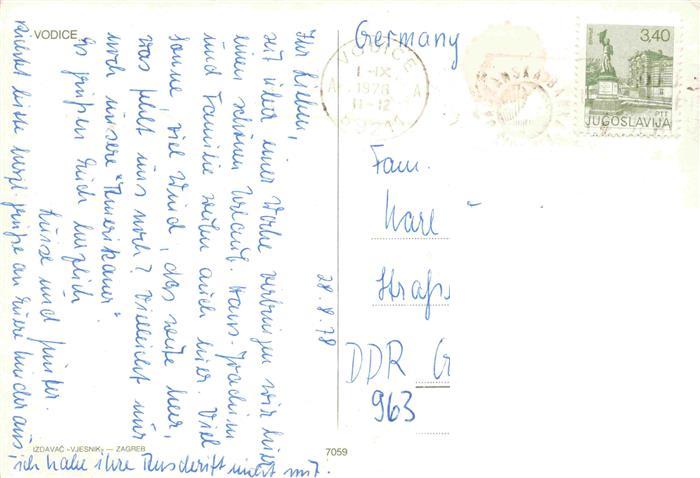 VODICE
28.8.78
Ihr Lieben,
seit über einer Woche verbringen wir hier
einen schönen Urlaub. Hans-Joachim
und Familie weilen auch hier. Viel
Sonne, viel Wind, das weite Meer,
was fehlt uns noch? Vielleicht nur
noch unsere "Amerikaner"
Es grüßen Euch herzlich
und
Richtet bitte herzl. Grüße an Eure Kinder aus,
ich habe ihre Anschrift nicht mit.
IZDAVAČ «VJESNIK» — ZAGREB
7059
Germany
VODICE
1-IX.
1978
11-12
A A
3,40
PTT
JUGOSLAVIJA
Fam.
Karl
Straß
DDR G
963